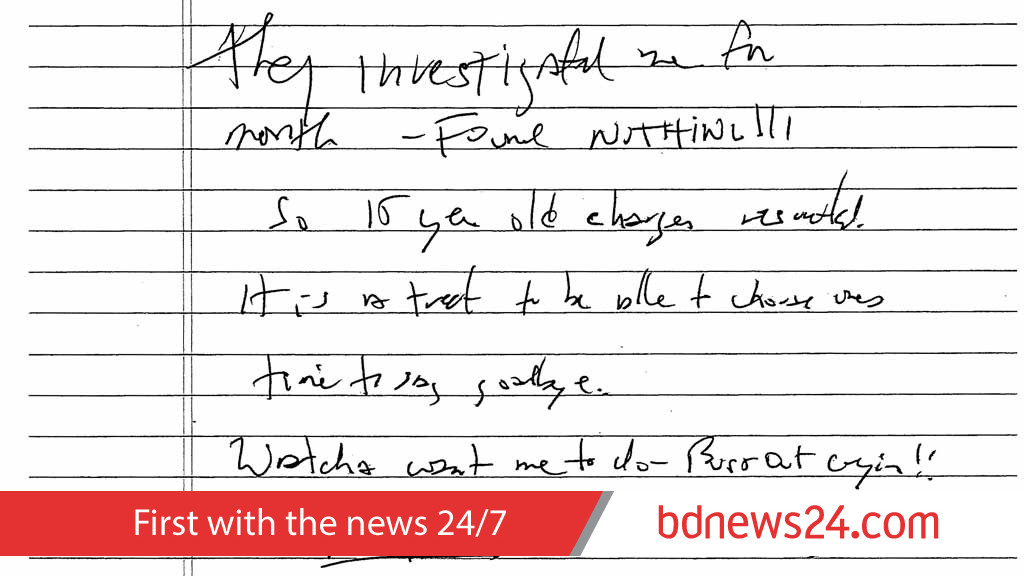 They investigated me for
month – Found NOTHING!!!
So 15 year old charges resulted.
It is a treat to be able to choose ones
time to say goodbye.
Watcha want me to do – Burst out cryin!!
First with the news 24/7
bdnews24.com